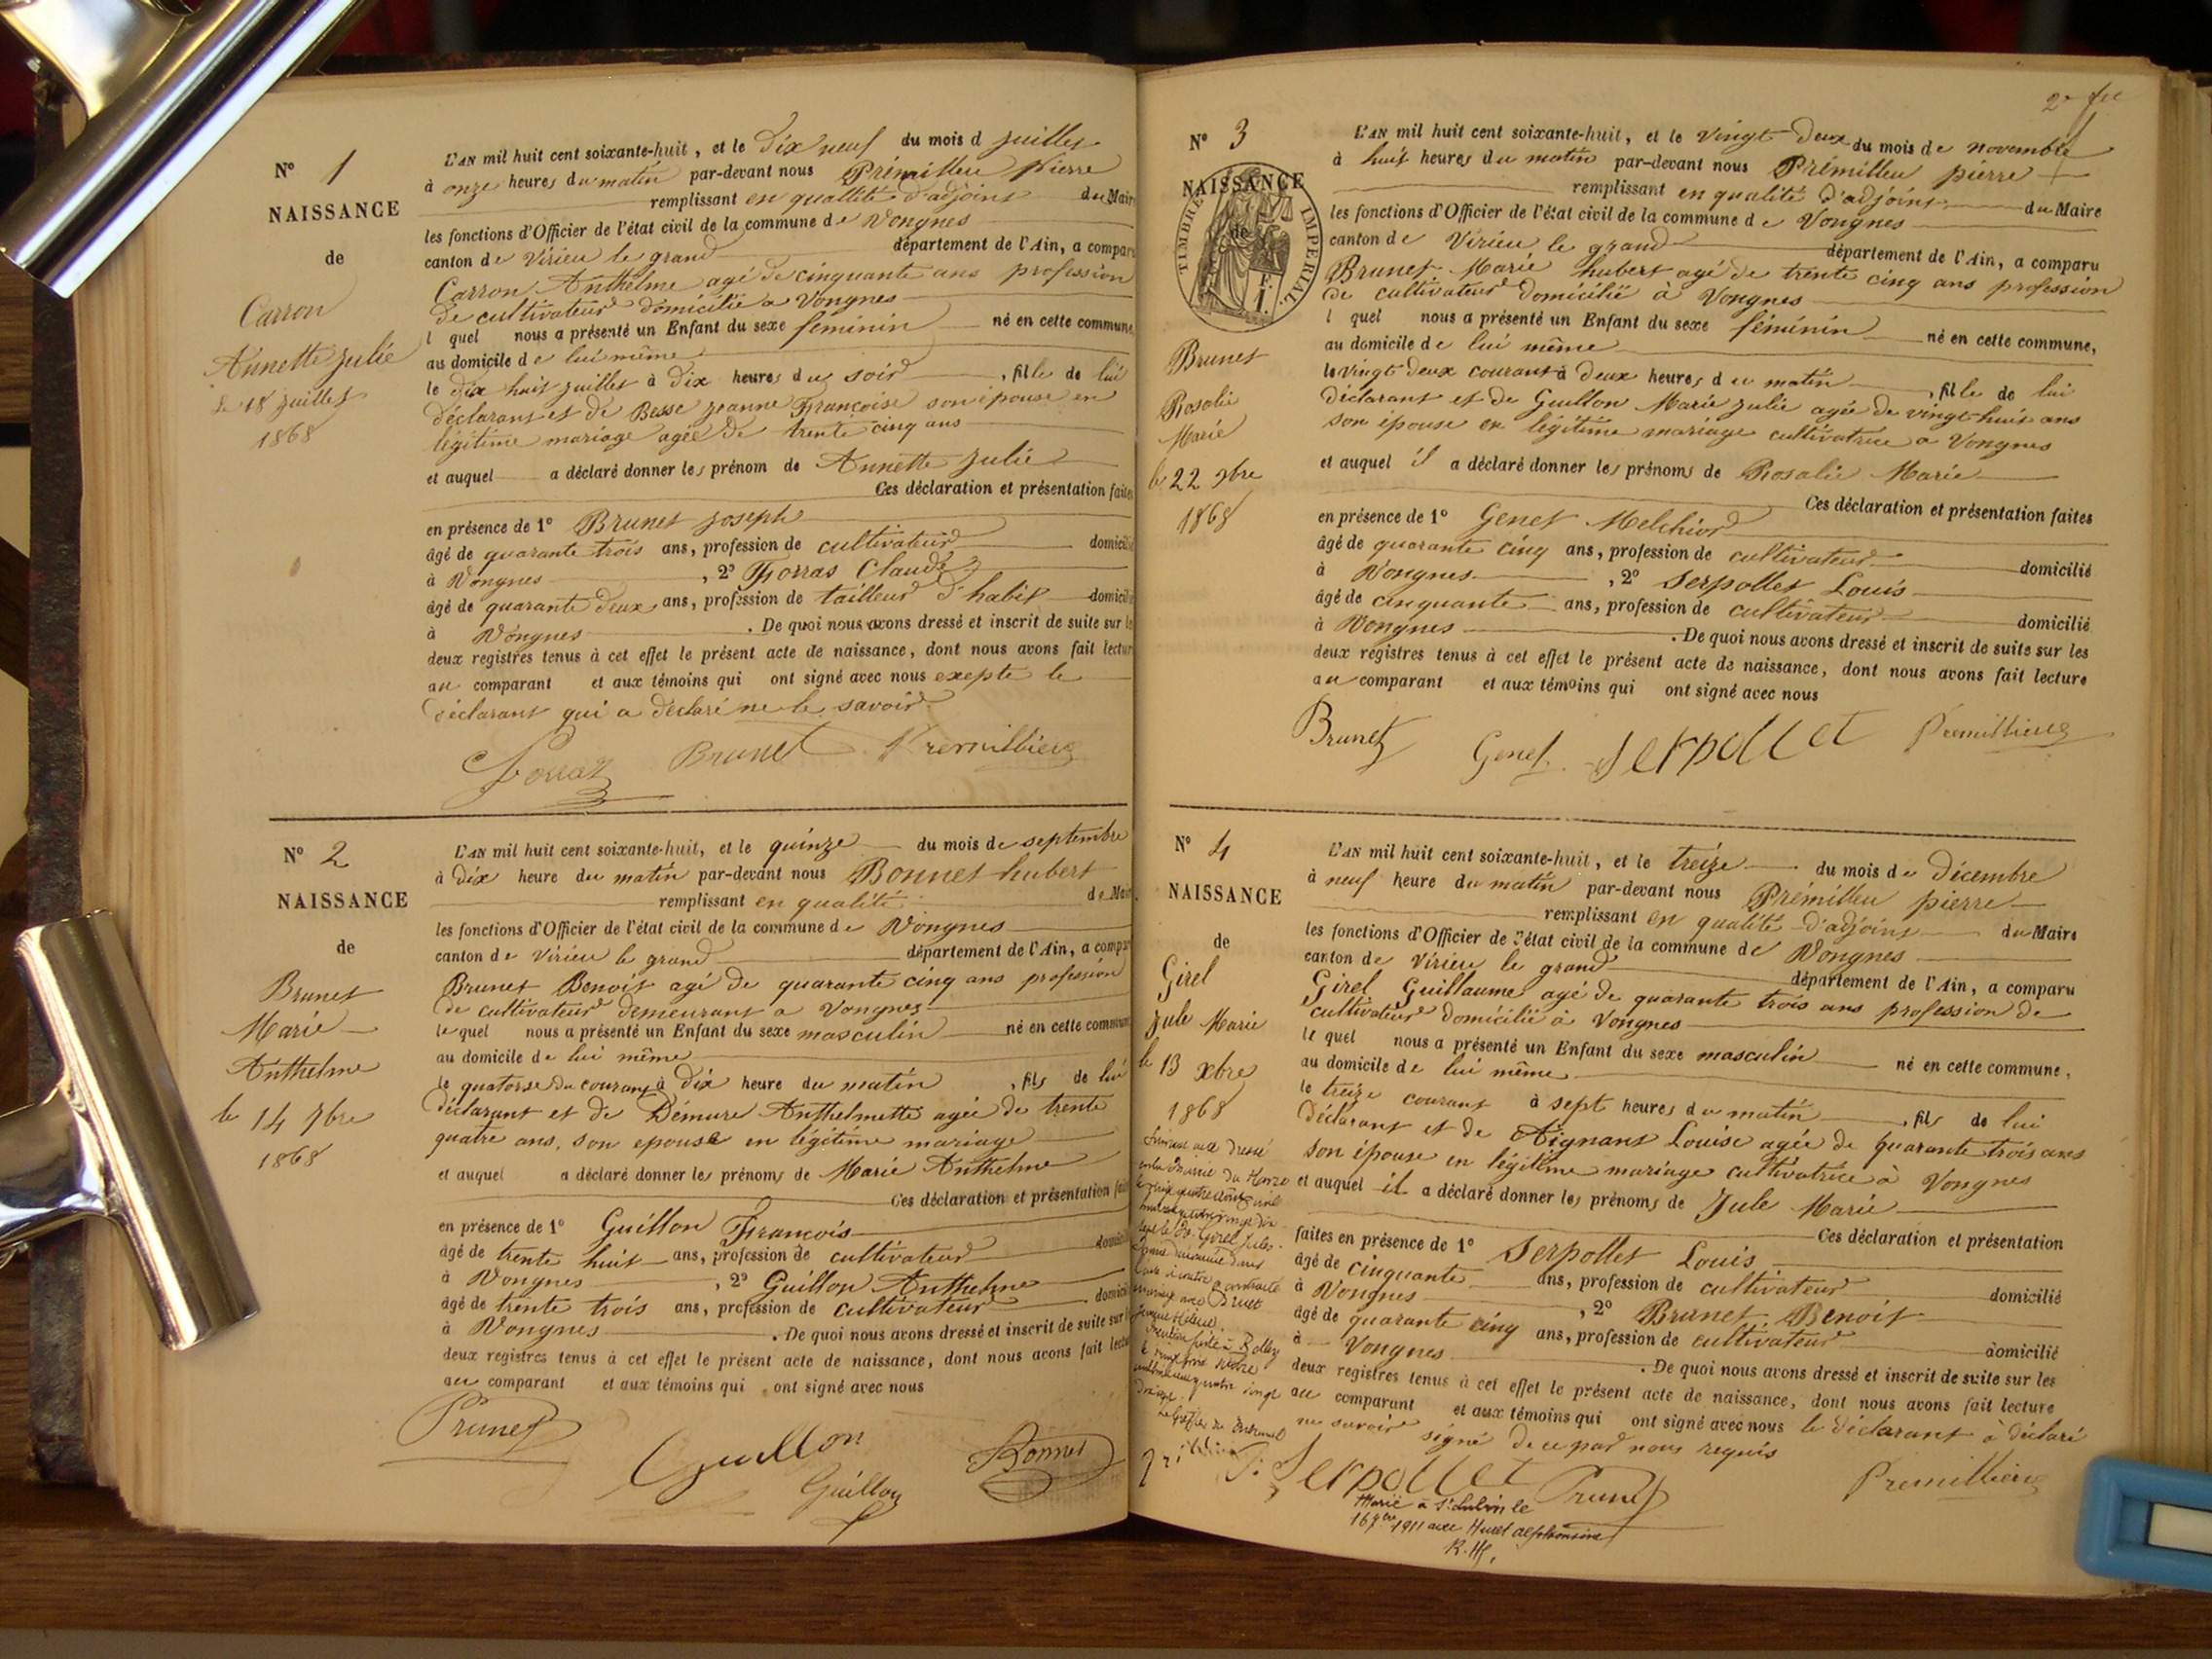 N° 1
NAISSANCE
de
Carron
Annette Julie
le 18 Juillet
1868
L'AN mil huit cent soixante-huit, et le Dix neuf du mois d Juillet
à onze heures du matin par-devant nous Prémillieu pierre
remplissant en qualité d'adjoint du Maire
les fonctions d'Officier de l'état civil de la commune de Vongnes
canton de Virieu le grand département de l'Ain, a comparu
Carron Anthelme agé de cinquante ans profession
de cultivateur domicilié a Vongnes
l quel nous a présenté un Enfant du sexe féminin né en cette commune,
au domicile de lui même
le dix huit Juillet à Dix heures du soir , fille de lui
déclarant et de Besse Jeanne Françoise son épouse en
légitime mariage agée de trente cinq ans
et auquel a déclaré donner les prénom de Annette Julie
Ces déclaration et présentation faites
en présence de 1° Brunet Joseph
âgé de quarante trois ans, profession de cultivateur domicilié
à Vongnes , 2° Forras Claude
âgé de quarante deux ans, profession de tailleur d'habit domicilié
à Vongnes . De quoi nous avons dressé et inscrit de suite sur les
deux registres tenus à cet effet le présent acte de naissance, dont nous avons fait lecture
au comparant et aux témoins qui ont signé avec nous exepté le
déclarant qui a déclaré ne le savoir
Brunet Premillieu
N° 2
NAISSANCE
de
Brunet
Marie
Anthelme
le 14 7bre
1868
L'AN mil huit cent soixante-huit, et le quinze du mois de septembre
à dix heure du matin par-devant nous Bonnet hubert
remplissant en qualité de Maire
les fonctions d'Officier de l'état civil de la commune de Vongnes
canton de Virieu le grand département de l'Ain, a comparu
Brunet Benoit agé de quarante cinq ans profession
de cultivateur demeurant a Vongnes
le quel nous a présenté un Enfant du sexe masculin né en cette commune
au domicile de lui même
le quatorse du courant à dix heure du matin , fils de lui
déclarant et de Démure Anthelmette agée de trente
quatre ans, son epouse en légitime mariage
et auquel a déclaré donner les prénoms de Marie Anthelme
Ces déclaration et présentation fait
en présence de 1° Guillon François
âgé de trente huit ans, profession de cultivateur domicilié
à Vongnes , 2° Guillon Anthelme
âgé de trente trois ans, profession de cultivateur domicilié
à Vongnes . De quoi nous avons dressé et inscrit de suite sur
deux registres tenus à cet effet le présent acte de naissance, dont nous avons fait lecture
au comparant et aux témoins qui ont signé avec nous
Brunet Guillon Guillon Bonnet
2e
N° 3
NAISSANCE
de
TIMBRE IMPERIAL.
Brunet
Rosalie
Marie
le 22 9bre
1868
L'AN mil huit cent soixante-huit, et le vingt Deux du mois de novembre
à huit heures du matin par-devant nous Prémillieu pierre
remplissant en qualité d'adjoint du Maire
les fonctions d'Officier de l'état civil de la commune de Vongnes
canton de Virieu le grand département de l'Ain, a comparu
Brunet Marie hubert agé de trente cinq ans profession
de cultivateur domicilié à Vongnes
l quel nous a présenté un Enfant du sexe féminin né en cette commune,
au domicile de lui même
le vingt deux courant à deux heures du matin , fille de lui
déclarant et de Guillon Marie Julie agée de vingt huit ans
son épouse en légitime mariage cultivatrice a Vongnes
et auquel il a déclaré donner les prénoms de Rosalie Marie
Ces déclaration et présentation faites
en présence de 1° Genet Melchior
âgé de quarante cinq ans, profession de cultivateur domicilié
à Vongnes , 2° Serpollet Louis
âgé de cinquante ans, profession de cultivateur domicilié
à Vongnes . De quoi nous avons dressé et inscrit de suite sur les
deux registres tenus à cet effet le présent acte de naissance, dont nous avons fait lecture
au comparant et aux témoins qui ont signé avec nous
Brunet Genet Serpollet Premillieu
N° 4
NAISSANCE
de
Girel
Jule Marie
le 13 xbre
1868
L'AN mil huit cent soixante-huit, et le treize du mois de Décembre
à neuf heure du matin par-devant nous Prémillieu pierre
remplissant en qualité d'adjoint du Maire
les fonctions d'Officier de l'état civil de la commune de Vongnes
canton de Virieu le grand département de l'Ain, a comparu
Girel Guillaume agé de quarante trois ans profession de
cultivateur domicilié à Vongnes
le quel nous a présenté un Enfant du sexe masculin né en cette commune,
au domicile de lui même
le treize courant à sept heures du matin , fils de lui
déclarant et de Aignant Louise agée de quarante trois ans
son épouse en légitime mariage cultivatrice à Vongnes
et auquel il a déclaré donner les prénoms de Jule Marie
Ces déclaration et présentation
faites en présence de 1° Serpollet Louis
âgé de cinquante ans, profession de cultivateur domicilié
à Vongnes , 2° Brunet Benoit
âgé de quarante cinq ans, profession de cultivateur domicilié
à Vongnes . De quoi nous avons dressé et inscrit de suite sur les
deux registres tenus à cet effet le présent acte de naissance, dont nous avons fait lecture
au comparant et aux témoins qui ont signé avec nous le déclarant à déclaré
ne savoir signé de ce par nous requis
Serpollet Brunet Premillieu
Marié à St Aubin le
1911 avec Huret Alphonsine